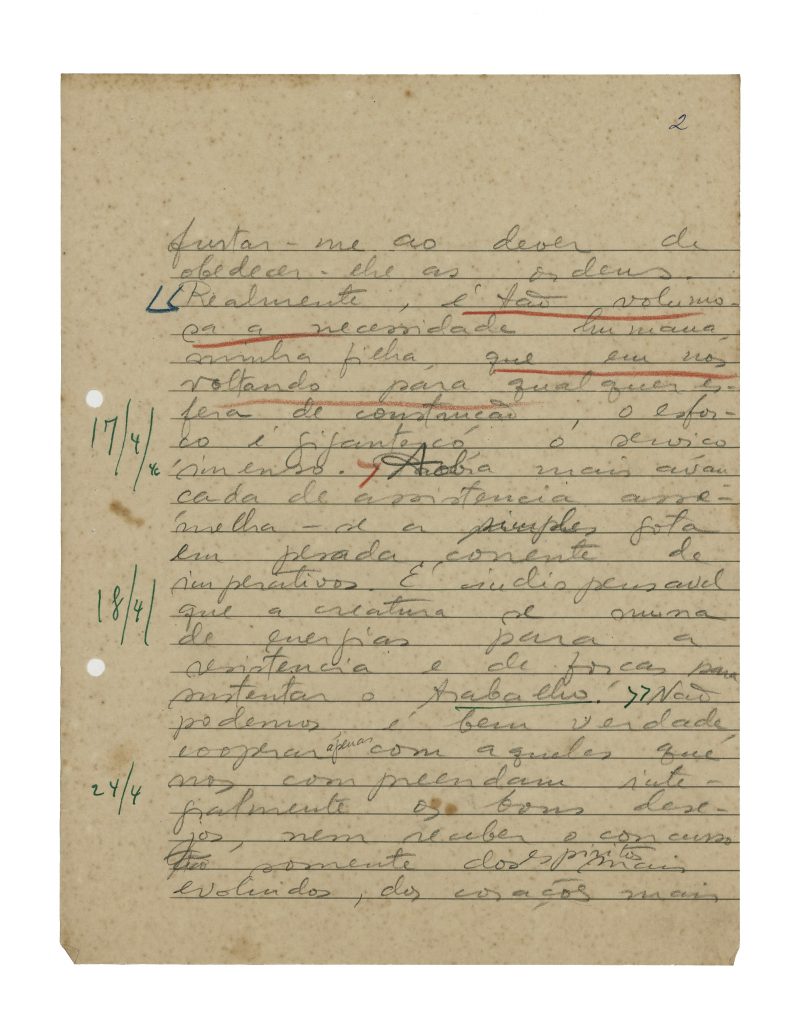 2
furtar-me ao dever de
obedecer-lhe as ordens.
Realmente, é tão volumo-
sa a necessidade humana,
minha filha, que em nos
voltando para qualquer es-
fera de construção, o esfor-
17/4/46
ço é gigantesco, o serviço
imenso. A mais avan
çada de assistencia asse-
melha-se a simples gota
em pesada corrente de
imperativos. É indispensavel
18/4/
que a creatura se muna
de energias para a
resistencia e de forças para
sustentar o trabalho. Não
podemos é bem verdade,
cooperar apenas com aqueles que
24/4
nos compreendam inte-
gralmente os bons dese-
jos, nem receber o concurso
somente dos espiritos mais
evoluidos, dos corações mais